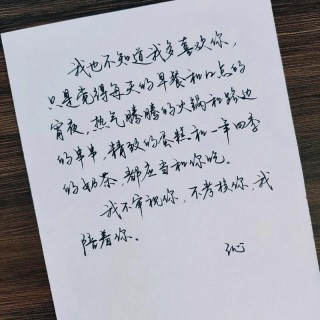 我也不知道我多喜欢你,
只是觉得每天的早餐和12点的
宵夜,热气腾腾的火锅和路边
的串串,精致的蛋糕和一年四季
的奶茶,都应当和你吃。
我不审视你,不考核你,我
陪着你。